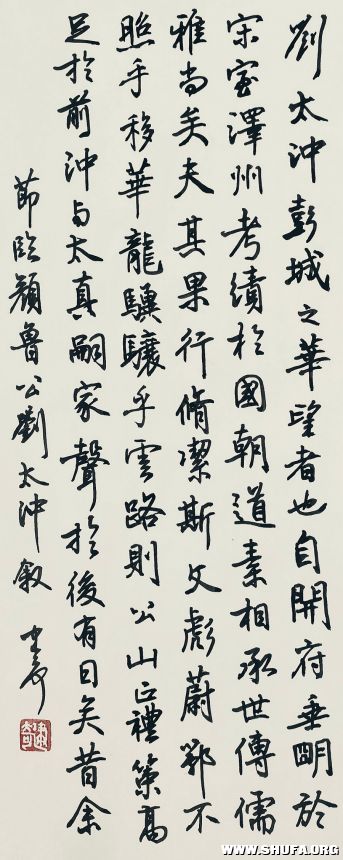 劉太沖彭城之華望者也自開府垂明於
宋室澤州考績於國朝道素相承世傳儒
雅尚矣夫其果行脩潔斯文彪蔚鄂不
照乎移華龍驥驤乎雲路則公山正禮策高
足於前沖与太真嗣家聲於後有日矣昔余
節臨顏魯公劉太沖叙
WWW.SHUFA.ORG